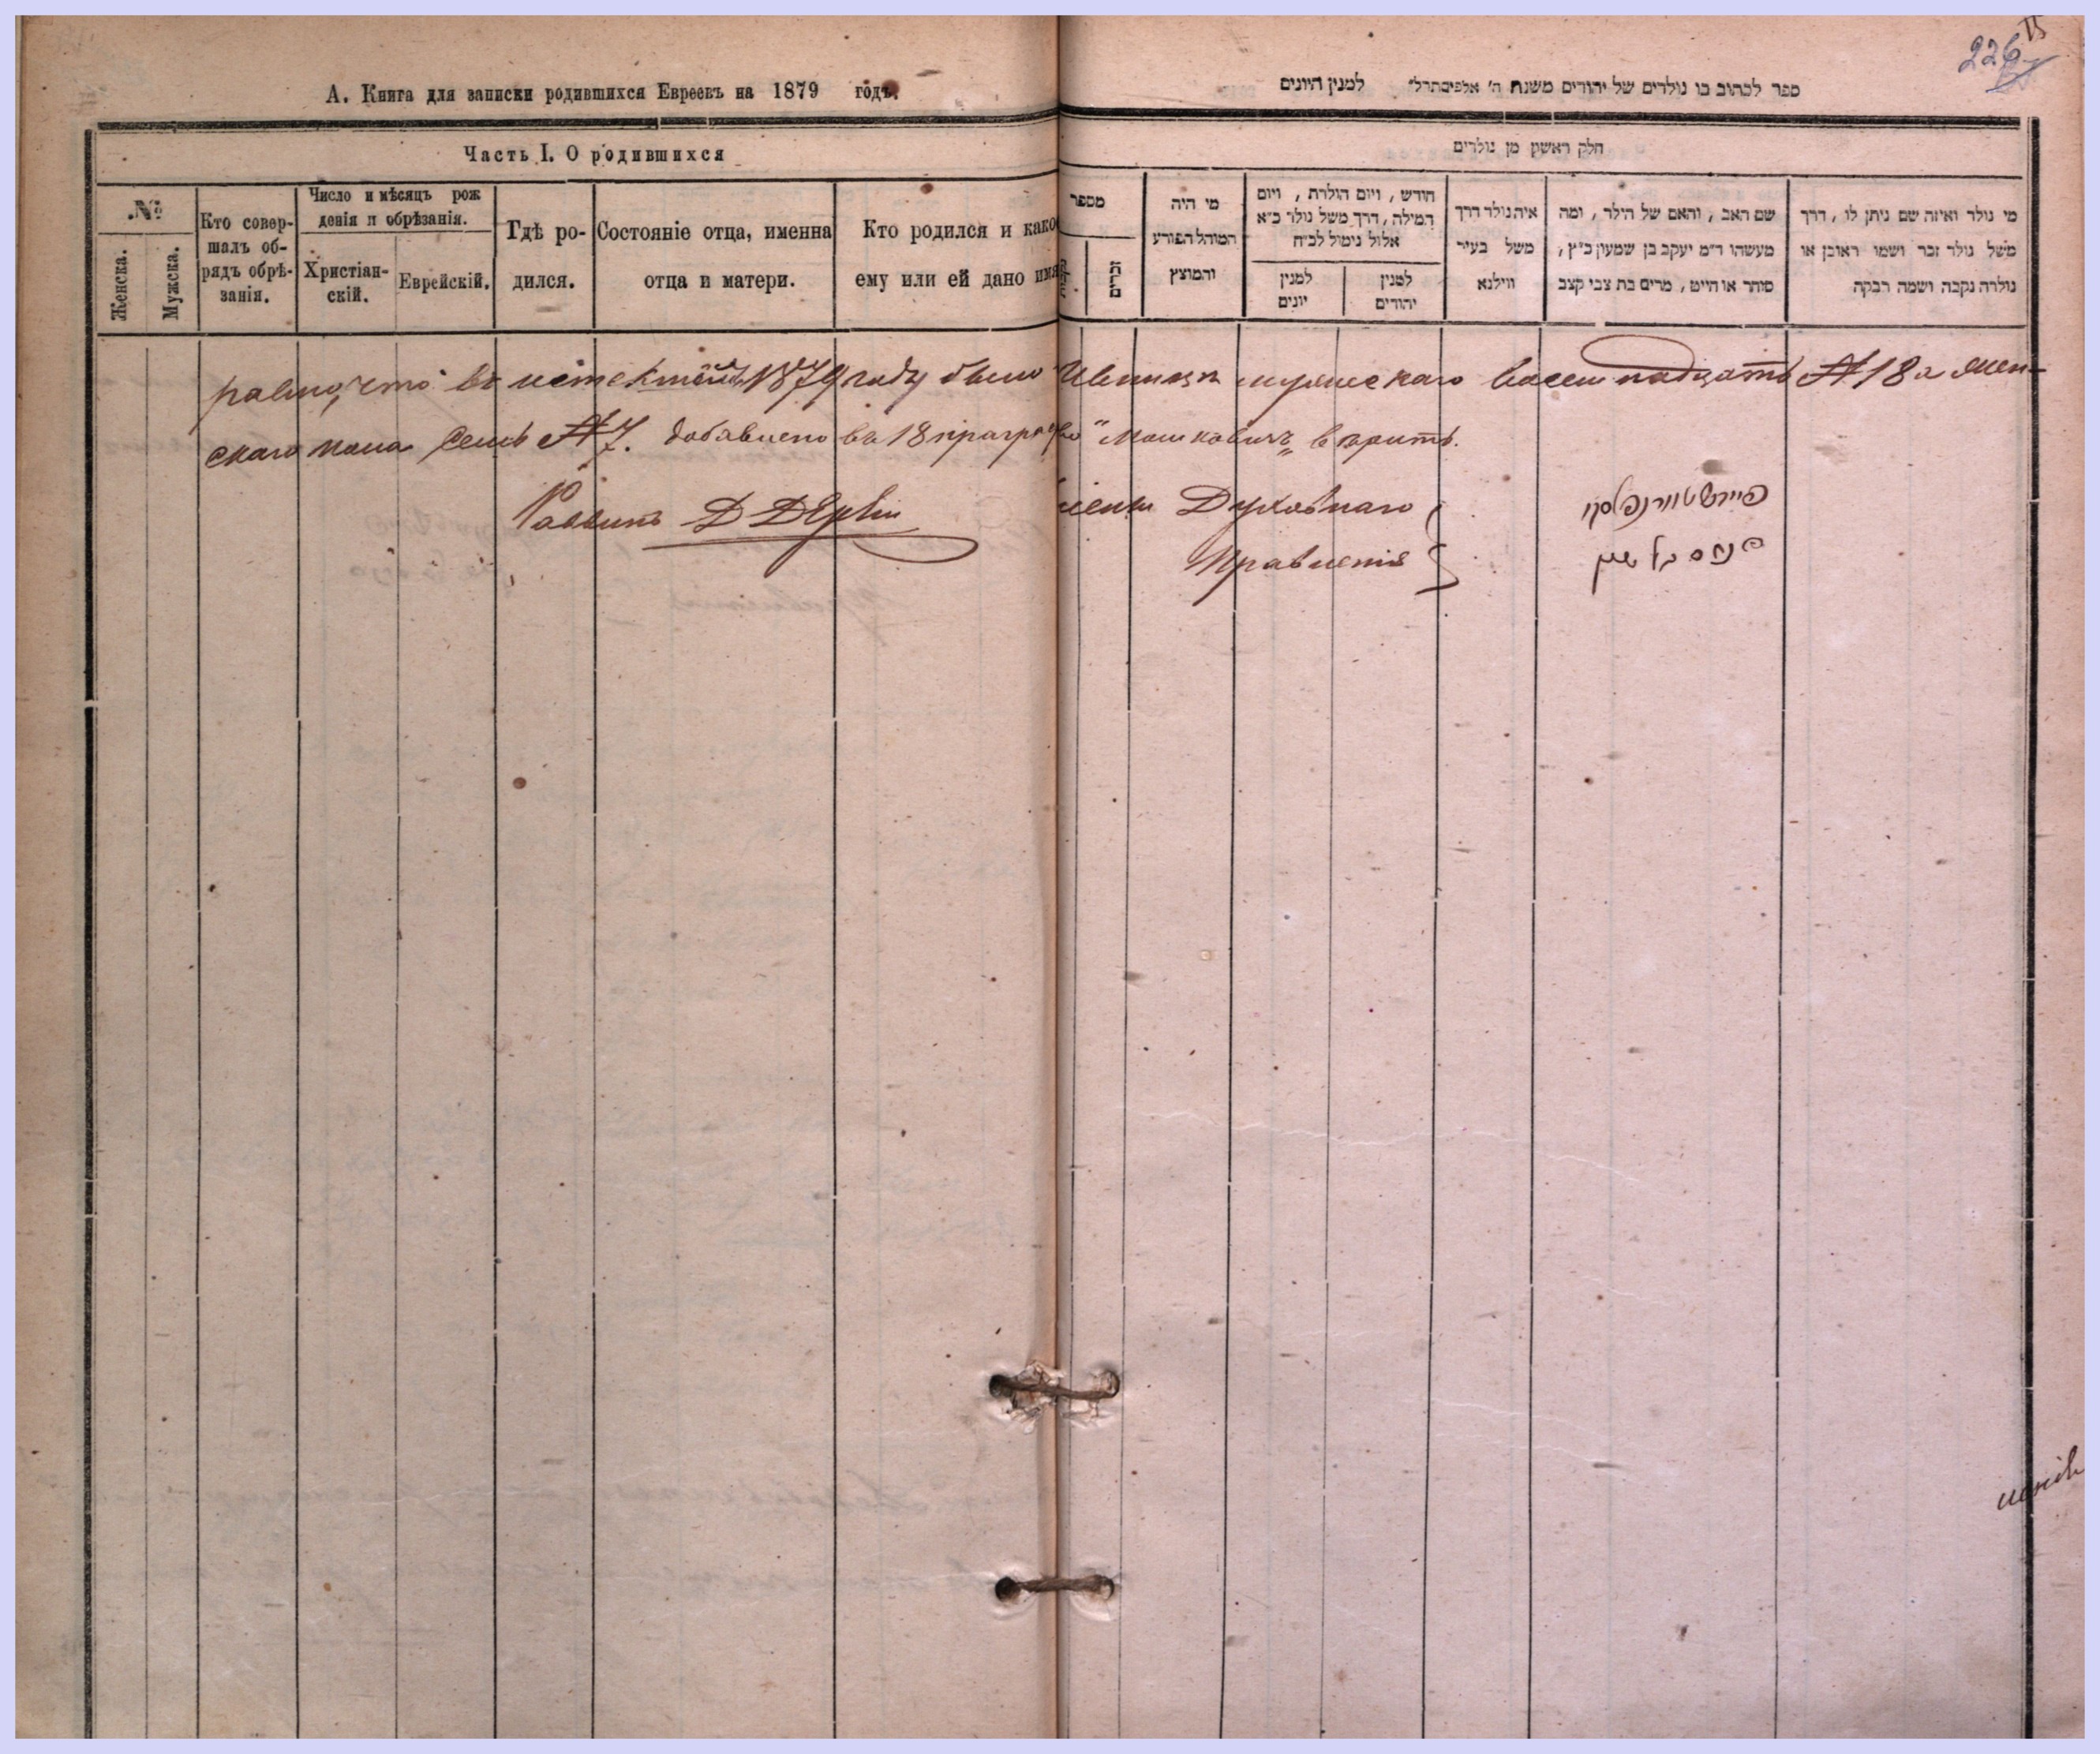 226
А. Книга для записки родившихся Евреевъ на 1879 годъ.
Часть I. О родившихся
№
Женска.
Мужска.
Кто совер-
шалъ об-
рядъ обрѣ-
занія.
Число и мѣсяцъ рож
денія и обрѣзанія.
Христіан-
скій.
Еврейскій.
Гдѣ ро-
дился.
Состояніе отца, именна
отца и матери.
Кто родился и како
ему или ей дано имя
ספר לכתוב בו נולדים של יהודים משנת ה' אלפים תרל" למנין היונים
חלק ראשון מן נולדים
מספר
זכרים
מי היה
המוהל הפורע
והמוצץ
חודש, ויום הולדת, ויום
המילה, דרך משל נולד כ"א
אלול נימול לכ"ח
למנין
יונים
למנין
יהודים
איה נולד דרך
משל בעיר
ווילנא
שם האב, והאם של הילד, ומה
מעשהו ד"מ יעקב בן שמעון כ"ץ,
סוחר או חייט, מרים בת צבי קצב
מי נולד ואיזה שם ניתן לו, דרך
משל נולד זכר ושמו ראובן או
נולדה נקבה ושמה רבקה
1879 году было мужескаго восемнадцать № 18 а жен-
скаго пола семь № 7. добавлено въ 18 "Мошковичъ" вѣрить.
Раввинъ
Члены Духовнаго
Правленія